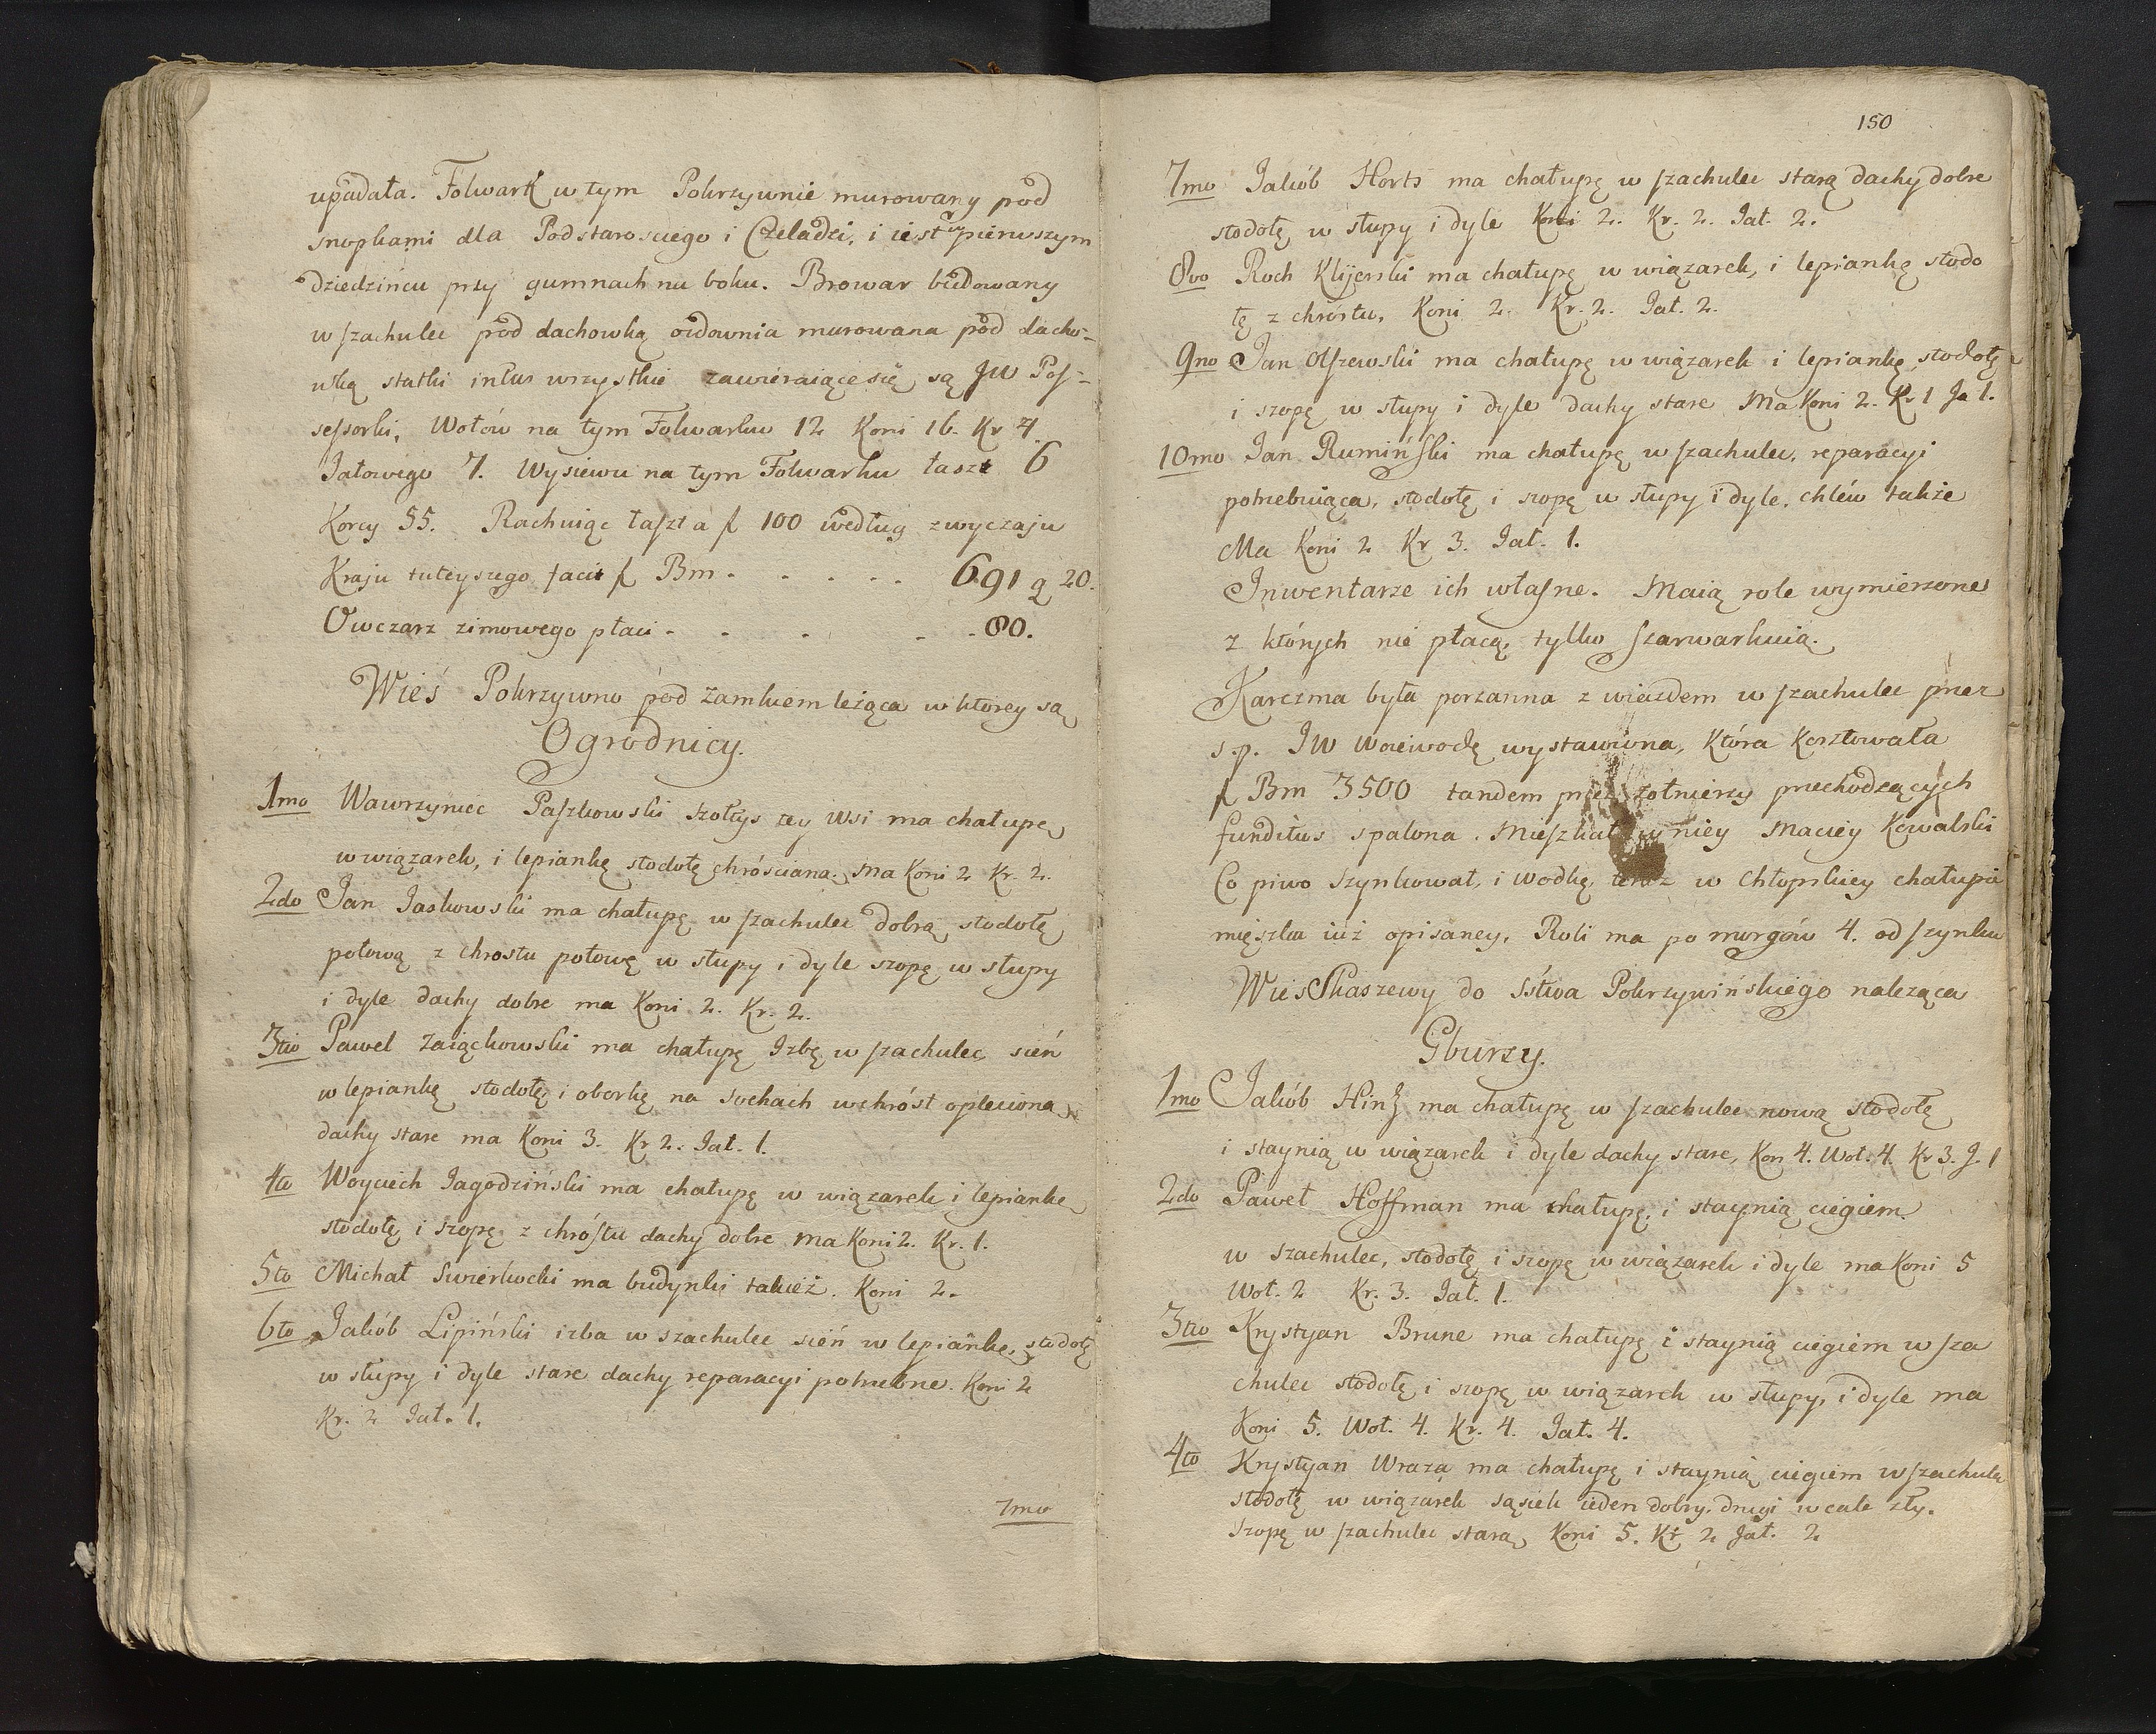 upadała. Folwark w tym Pokrzywnie murowany pod
snopkami dla Podstarosciego i Czeladzi, i iest w pierwszym
dziedzińcu przy gumnach na boku. Browar budowany
w szachulec pod dachowką ozdownia murowana pod dacho-
wką statki intus wszystkie zawieraiące się są JW Pos-
sessorki, Wołów na tym Folwarku 12 Koni 16. Kr 7.
Jałowego 7. Wysiewu na tym Folwarku łaszt 6
Korcy 55. Rachuiąc łaszt a f 100 według zwyczaju
Kraju tuteyszego facit f Bm . . . . . 691 g 20.
Owczarz zimowego płaci . . . . . 80.
Wieś Pokrzywno pod Zamkiem leżąca w którey są
Ogrodnicy.
1mo Wawrzyniec Paszkowski szołtys tey wsi ma chałupę
w wiązarek, i lepiankę stodołę chróściana. Ma Koni 2 Kr. 2.
2do Jan Jaskowski ma chałupę w szachulec dobrą stodołę
połową z chrostu połowę w słupy i dyle szopę w słupy
i dyle dachy dobre ma Koni 2. Kr. 2.
3tio Paweł Zaiączkowski ma chałupę Izbę w szachulec sień
w lepiankę stodołę i oborkę na sochach w chróst opleciona
dachy stare ma Koni 3. Kr 2. Jał. 1.
4to Woyciech Jagodziński ma chałupę w wiązarek i lepiankę
stodołę i szopę z chróstu dachy dobre ma Koni 2. Kr. 1.
5to Michał Swierkocki ma budynki takież. Koni 2.
6to Jakób Lipiński izba w szachulec sień w lepiankę, stodołę
w słupy i dyle stare dachy reparacyi potrzebne. Koni 2
Kr. 2 Jał. 1.
7mo
150
7mo Jakób Horts ma chałupę w szachulec starą dachy dobre
stodołę w słupy i dyle Koni 2. Kr. 2. Jał. 2.
8vo Roch Klijerski ma chałupę w wiązarek, i lepiankę stodo
łę z chróstu, Koni 2. Kr. 2. Jał. 2.
9no Jan Olszewski ma chałupę w wiązarek i lepiankę stodołę
i szopę w słupy i dyle dachy stare Ma Koni 2. Kr 1 Ja 1.
10mo Jan Rumiński ma chałupę w szachulec, reparacyi
potrzebuiąca, stodołę i szopę w słupy i dyle, chlew także
Ma Koni 2 Kr 3. Jał. 1.
Inwentarze ich własne. Maią role wymierzone
z których nie płacą, tylko szarwarkuią.
Karczma była porzanna z wiazdem w szachulec przez
s.p. JW Woiewodę wystawiona, Która Kosztowała
f Bm 3500 tandem przez żołnierzy przechodzących
funditus spalona. Mieszkał w niey Maciey Kowalski
Co piwo szynkował, i wodkę, teraz w Chłopskiey chałupie
mięszka iuż opisaney. Roli ma po morgów 4. od szynku
Wies Płaszewy do Sstwa Pokrzywińskiego należąca
Gburzy.
1mo Jakób Hintz ma chałupę w szachulec nową stodołę
i staynią w wiązarek i dyle dachy stare, Kon 4. Woł. 4. Kr 3. J. 1
2do Paweł Hoffman ma chałupę i staynią ciegiem
w szachulec, stodołę i szopę w wiązarek i dyle ma Koni 5
Woł. 2 Kr. 3. Jał. 1.
3tio Krystyan Brune ma chałupę i staynią ciegiem w sza
chulec stodołę i szopę w wiązarek w słupy, i dyle ma
Koni 5. Woł. 4. Kr. 4. Jał. 4.
4to Krystyan Wraza ma chałupę i staynią ciegiem w szachulec
stodołę w wiązarek sąsiek ieden dobry, drugi wcale zły.
Szopę w szachulec starą Koni 5. Kr 2 Jał. 2